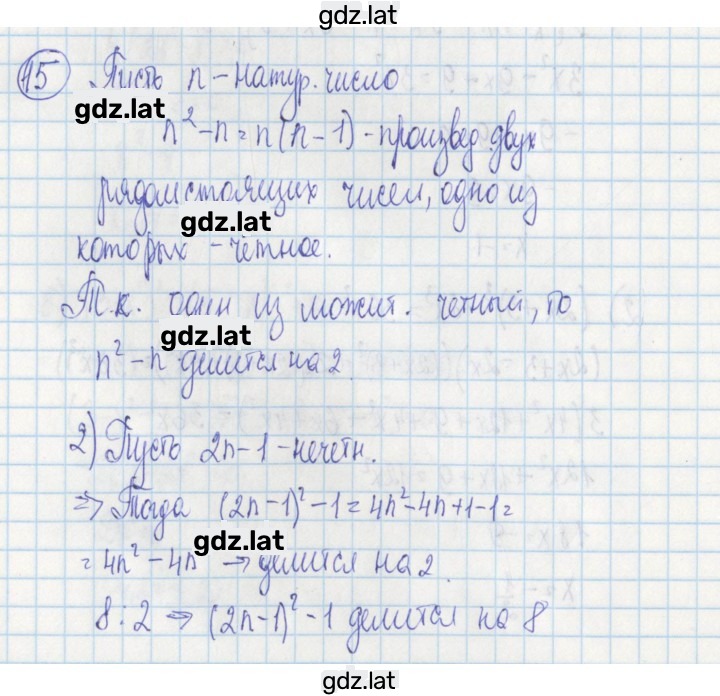 gdz.lat
15 Пусть n - натур. число
gdz.lat
n² - n = n(n - 1) - произвед. двух
рядомстоящих чисел, одно из
gdz.lat
которых - чётное.
Т.к. один из множит. четный, то
gdz.lat
n² - n делится на 2.
2) Пусть 2n - 1 - нечетн.
⇒ Тогда (2n - 1)² - 1 = 4n² - 4n + 1 - 1 =
gdz.lat
= 4n² - 4n → делится на 2.
8 : 2 ⇒ (2n - 1)² - 1 делится на 8
gdz.lat